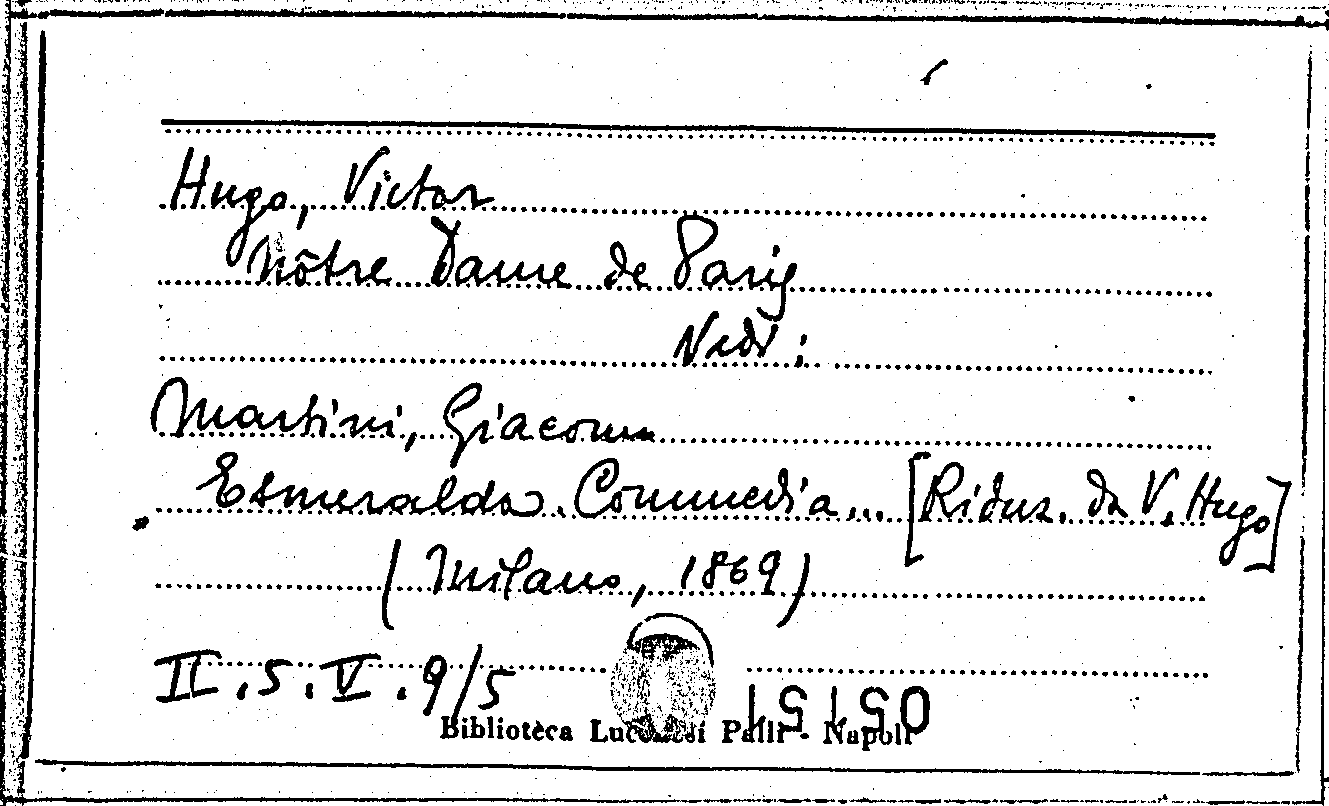 Hugo, Victor
Nôtre Dame de Paris
Vedi :
Martini, Giacomo
Esmeralda. Commedia... [Riduz. da V. Hugo]
(Milano, 1869)
II.5.V.9/5
Biblioteca Lucchesi Palli - Napoli